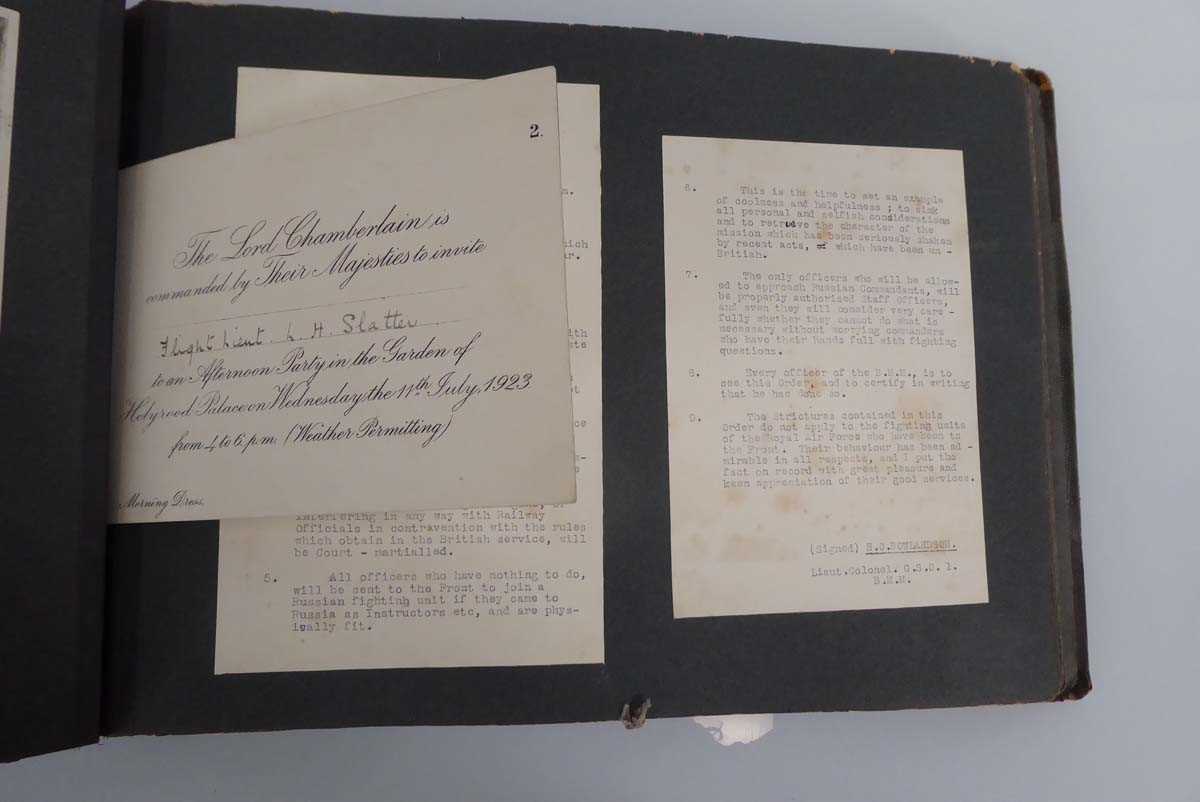 2.
The Lord Chamberlain is
commanded by Their Majesties to invite
Flight Lieut. L. H. Slatter
to an Afternoon Party in the Garden of
Holyrood Palace on Wednesday the 11th July, 1923
from 4 to 6 p.m. (Weather Permitting)
Morning Dress.
interfering in any way with Railway
Officials in contravention with the rules
which obtain in the British service, will
be Court - martialled.
5. All officers who have nothing to do,
will be sent to the Front to join a
Russian fighting unit if they came to
Russia as Instructors etc, and are phys-
ically fit.
6. This is the time to set an example
of coolness and helpfulness ; to sink
all personal and selfish considerations
and to retrieve the character of the
mission which has been seriously shaken
by recent acts, which have been un -
British.
7. The only officers who will be allow-
ed to approach Russian Commandants, will
be properly authorised Staff Officers,
and even they will consider very care -
fully whether they cannot do what is
necessary without worrying commanders
who have their hands full with fighting
questions.
8. Every officer of the B.M.M., is to
see this Order, and to certify in writing
that he has done so.
9. The Strictures contained in this
Order do not apply to the fighting units
of the Royal Air Force who have been to
the Front. Their behaviour has been ad -
mirable in all respects, and I put the
fact on record with great pleasure and
keen appreciation of their good services.
(Signed) H.C.ROWLANDSON.
Lieut.Colonel. G.S.O. 1.
B.M.M.